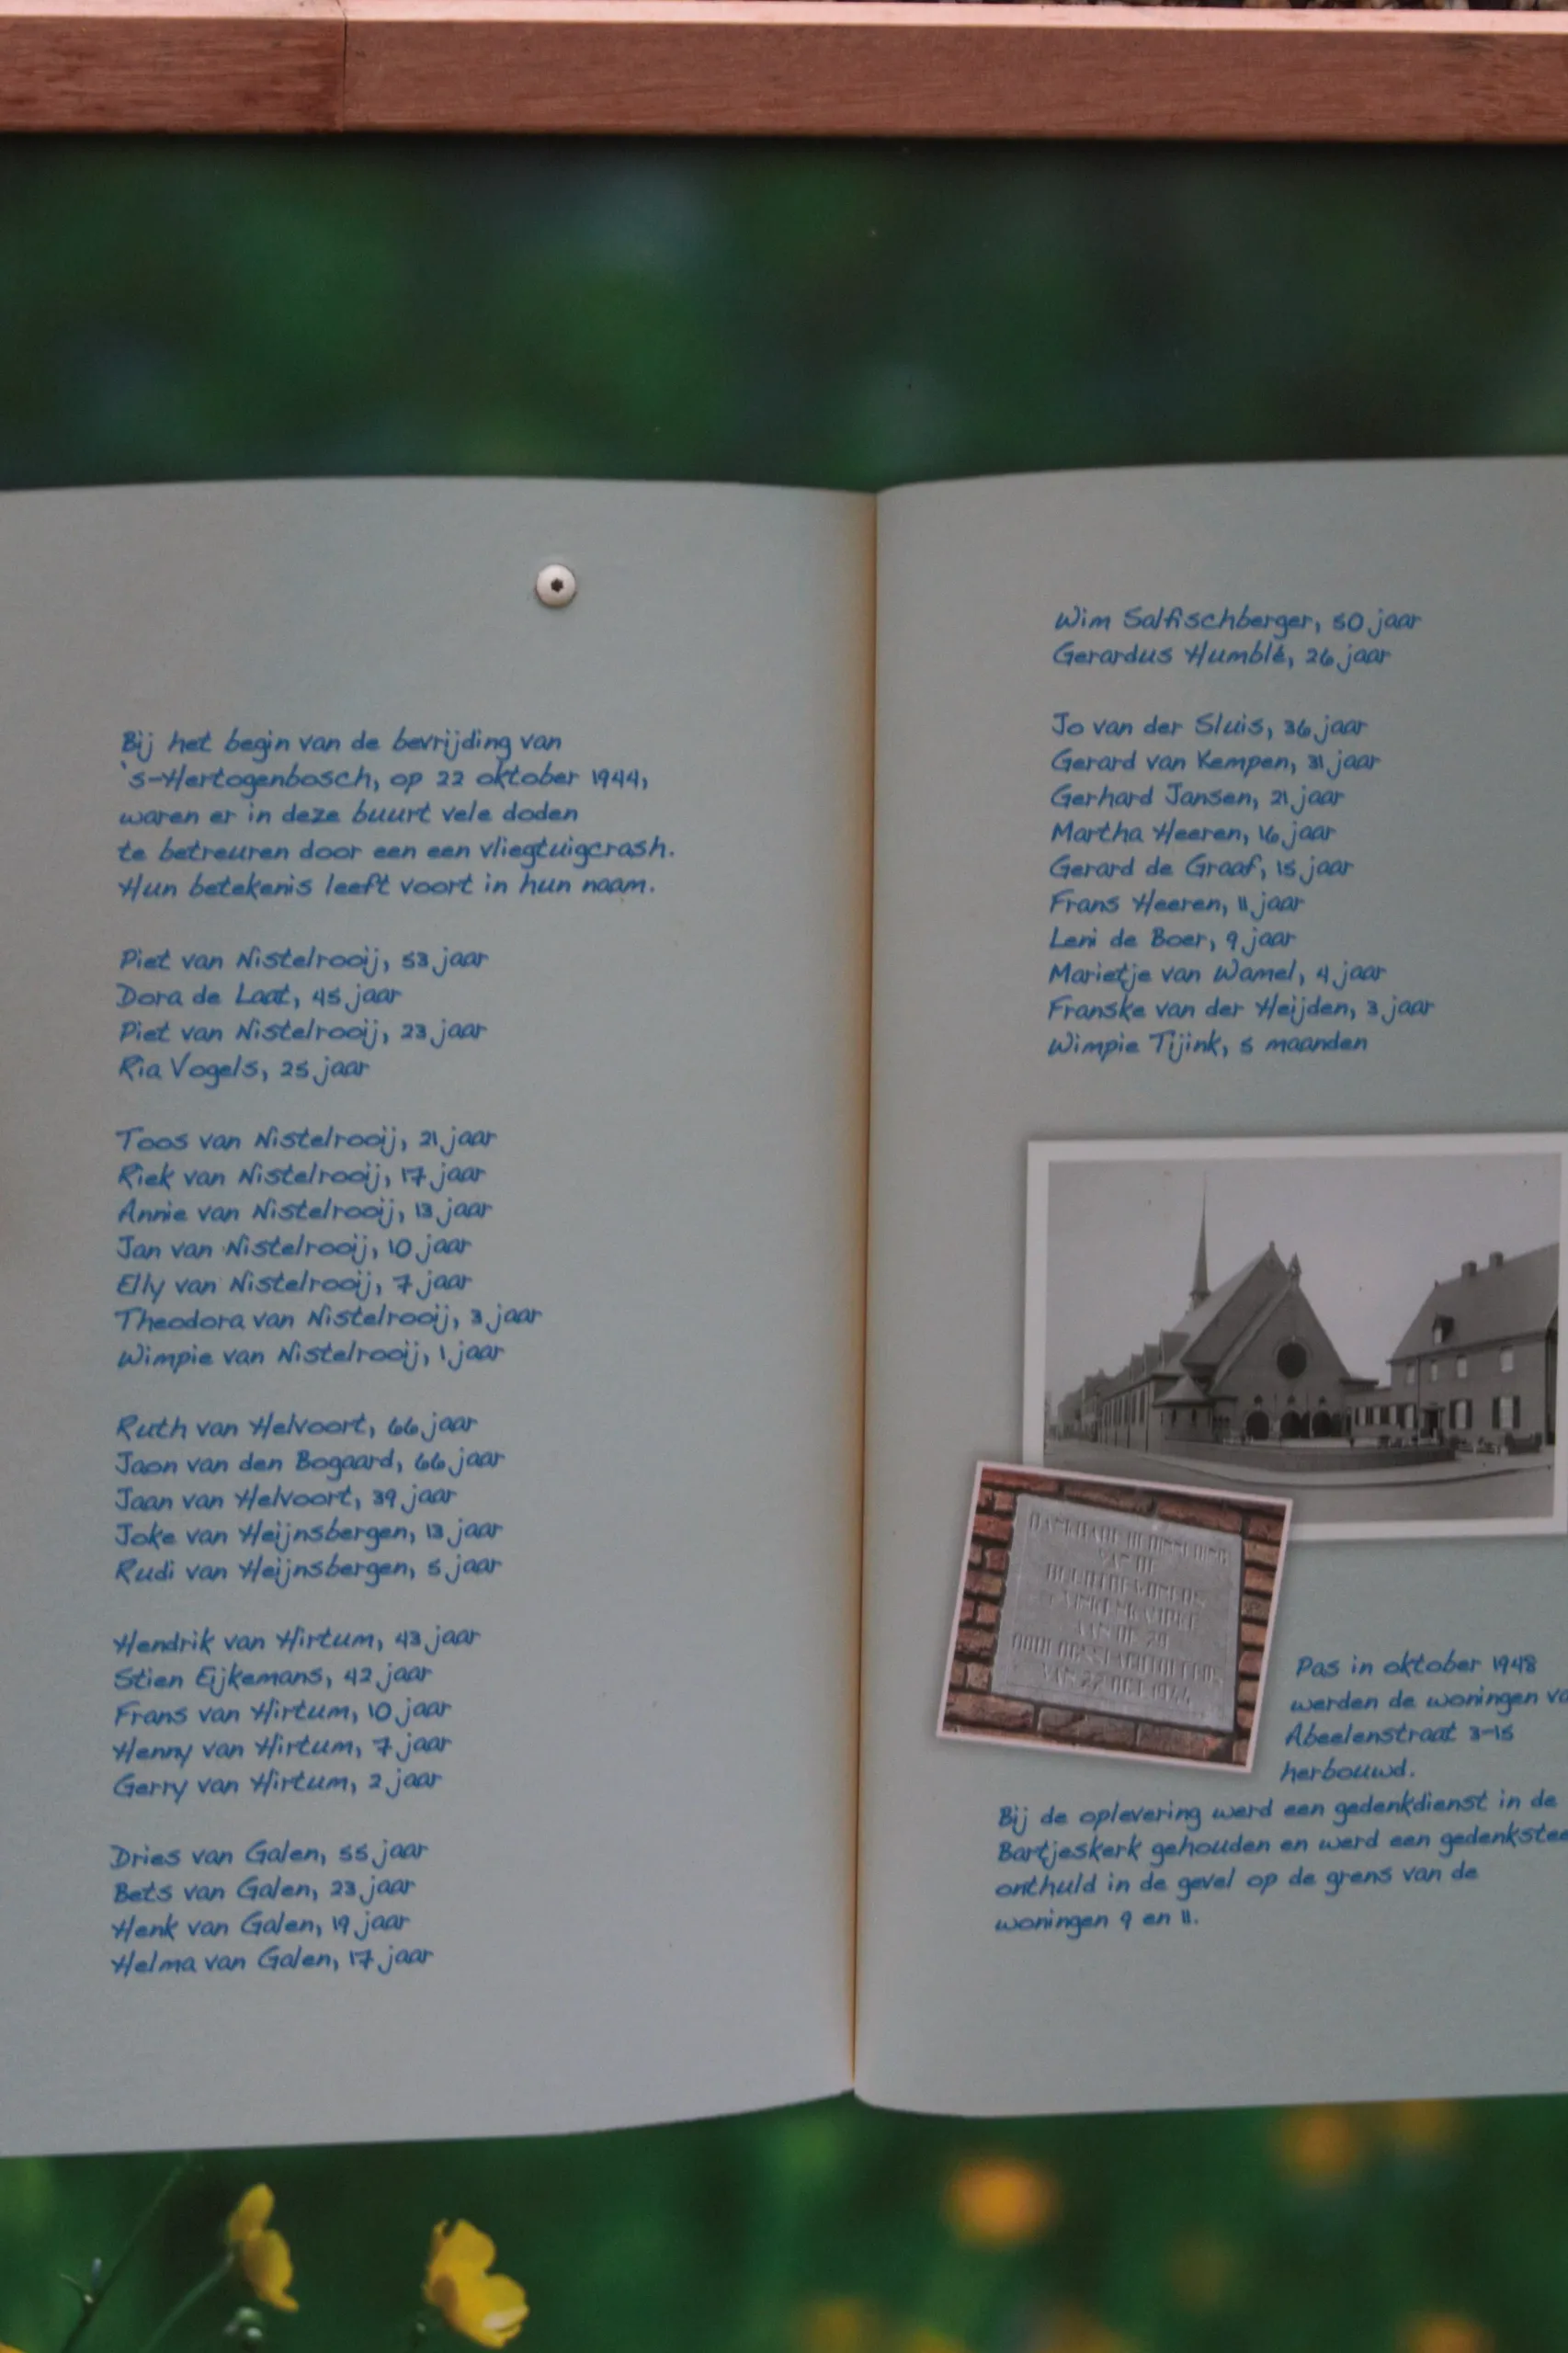 Bij het begin van de bevrijding van
's-Hertogenbosch, op 22 oktober 1944,
waren er in deze buurt vele doden
te betreuren door een een vliegtuigcrash.
Hun betekenis leeft voort in hun naam.
Piet van Nistelrooij, 53 jaar
Dora de Laat, 45 jaar
Piet van Nistelrooij, 23 jaar
Ria Vogels, 25 jaar
Toos van Nistelrooij, 21 jaar
Riek van Nistelrooij, 17 jaar
Annie van Nistelrooij, 13 jaar
Jan van Nistelrooij, 10 jaar
Elly van Nistelrooij, 7 jaar
Theodora van Nistelrooij, 3 jaar
Wimpie van Nistelrooij, 1 jaar
Ruth van Helvoort, 66 jaar
Jaon van den Bogaard, 66 jaar
Jaan van Helvoort, 39 jaar
Joke van Heijnsbergen, 13 jaar
Rudi van Heijnsbergen, 5 jaar
Hendrik van Hirtum, 43 jaar
Stien Eijkemans, 42 jaar
Frans van Hirtum, 10 jaar
Henny van Hirtum, 7 jaar
Gerry van Hirtum, 2 jaar
Dries van Galen, 55 jaar
Bets van Galen, 23 jaar
Henk van Galen, 19 jaar
Helma van Galen, 17 jaar
Wim Salfischberger, 50 jaar
Gerardus Humblé, 26 jaar
Jo van der Sluis, 36 jaar
Gerard van Kempen, 31 jaar
Gerhard Jansen, 21 jaar
Martha Heeren, 16 jaar
Gerard de Graaf, 15 jaar
Frans Heeren, 11 jaar
Leni de Boer, 9 jaar
Marietje van Wamel, 4 jaar
Franske van der Heijden, 3 jaar
Wimpie Tijink, 5 maanden
VAN DE
AAN DE
OORLOGSSLACHTOFFERS
VAN 22 OCT 1944
Pas in oktober 1948
werden de woningen va
Abeelenstraat 3-15
herbouwd.
Bij de oplevering werd een gedenkdienst in de
Bartjeskerk gehouden en werd een gedenkstee
onthuld in de gevel op de grens van de
woningen 9 en 11.